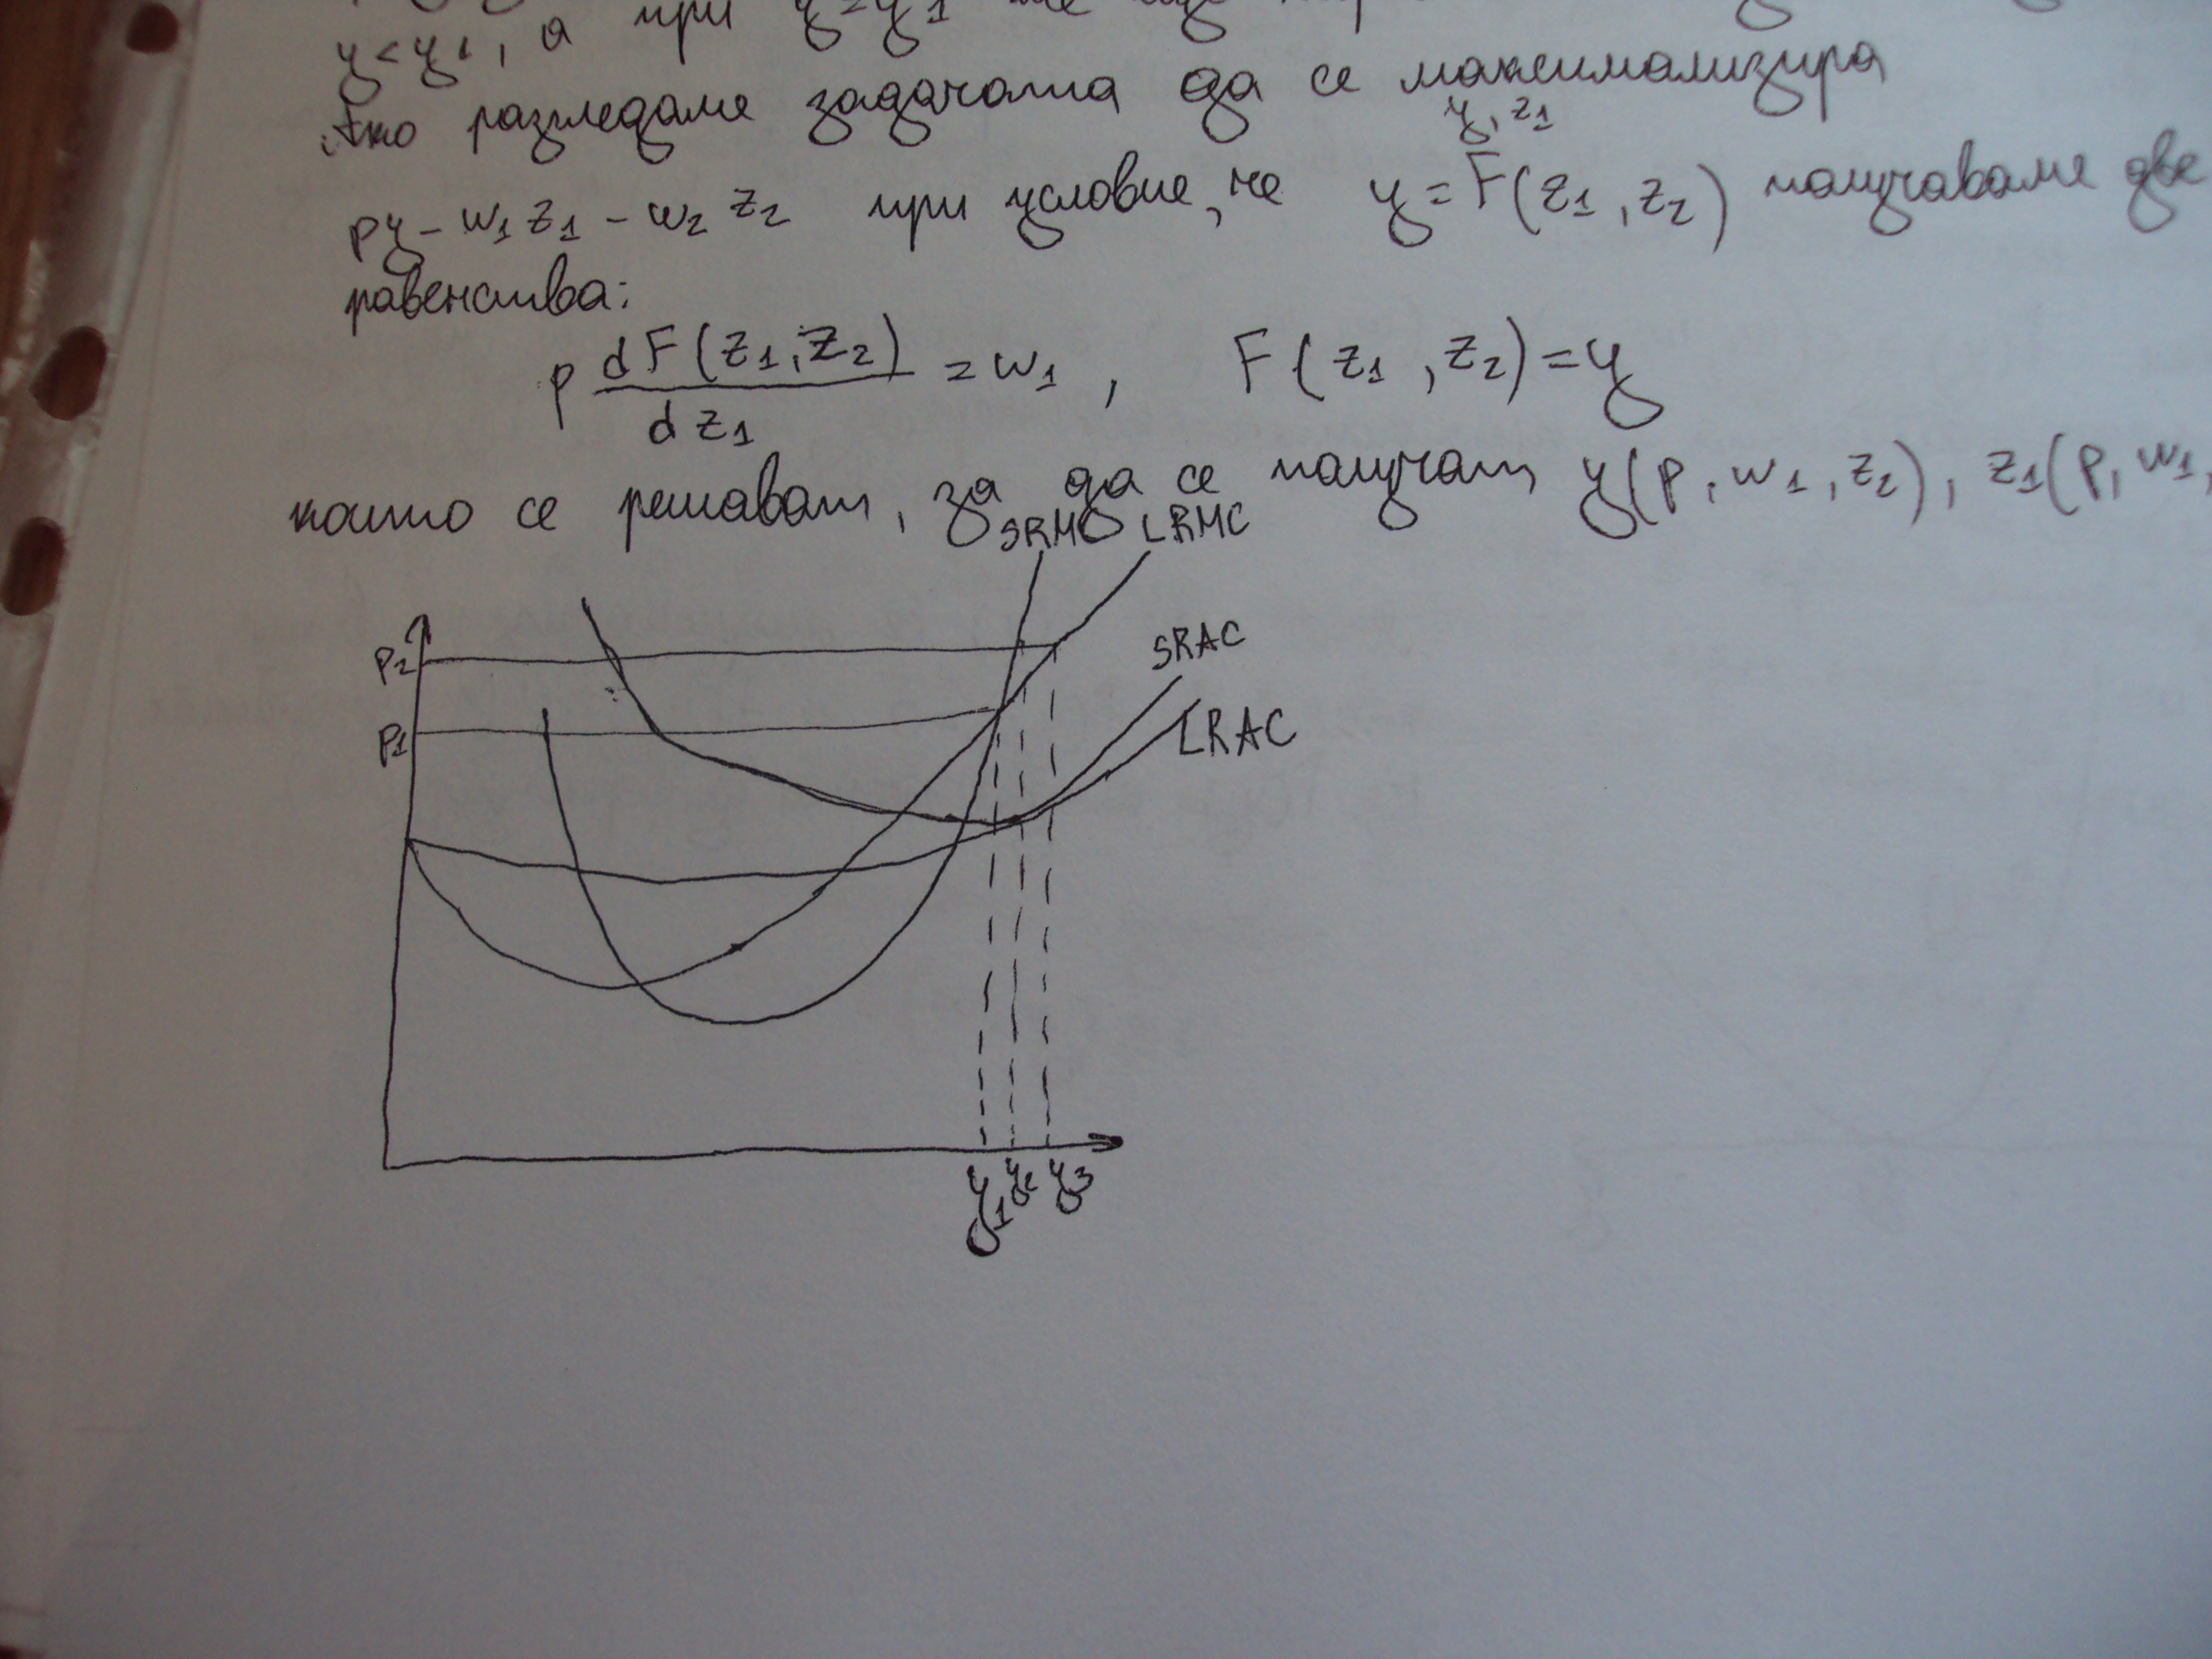 y < y1, а при y = y1
Ако разгледаме задачата да се максимализира
y, z1
py - w1 z1 - w2 z2 при условие, че y = F(z1, z2) получаваме две
равенства:
p dF(z1, z2) / dz1 = w1, F(z1, z2) = y
които се решават, за да се получат y(p, w1, z2), z1(p, w1,
SRMC LRMC
SRAC
P2
P1
LRAC
y1 y2 y3